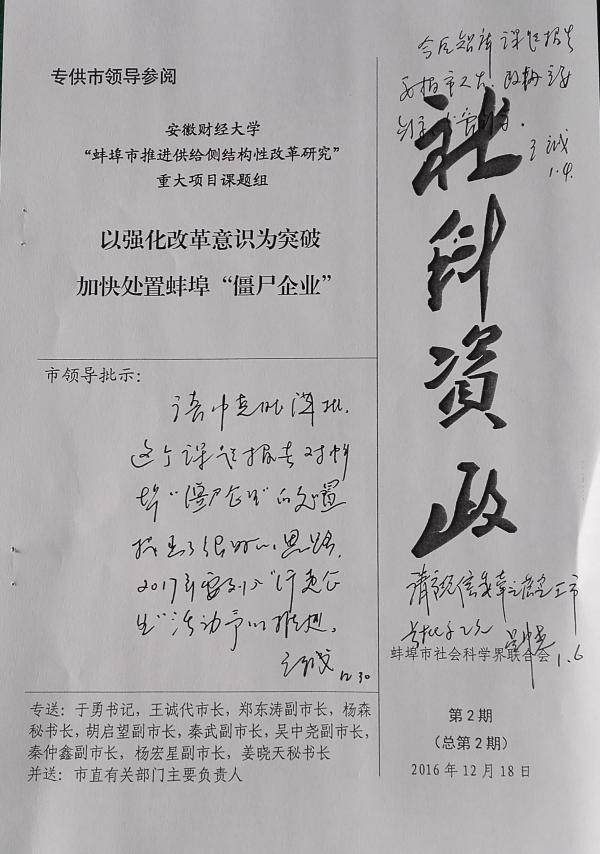 专供市领导参阅
安徽财经大学
“蚌埠市推进供给侧结构性改革研究”
重大项目课题组
以强化改革意识为突破
加快处置蚌埠“僵尸企业”
市领导批示:
请中尧同志阅批。
这个课题报告对蚌
埠“僵尸企业”的处置
提出了很好的思路,
2017年要列入
活动予以推进。
王诚
12.30
专送:于勇书记,王诚代市长,郑东涛副市长,杨森
秘书长,胡启望副市长,秦武副市长,吴中尧副市长,
秦仲鑫副市长,杨宏星副市长,姜晓天秘书长
并送:市直有关部门主要负责人
今后智库课题报告
王诚
1.4.
社科资政
1.6
蚌埠市社会科学界联合会
第2期
(总第2期)
2016年12月18日